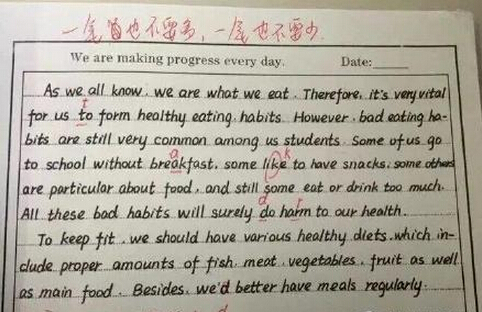 一定哪也不要多，一定也不要少
We are making progress every day. Date:
As we all know, we are what we eat. Therefore, it's very vital
t
for us to form healthy eating habits. However, bad eating ha-
bits are still very common among us students. Some of us go
a k
to school without breakfast, some like to have snacks, some others
are particular about food, and still some eat or drink too much.
d r
All these bad habits will surely do harm to our health.
To keep fit, we should have various healthy diets, which in-
clude proper amounts of fish, meat, vegetables, fruit as well
as main food. Besides, we'd better have meals regularly.